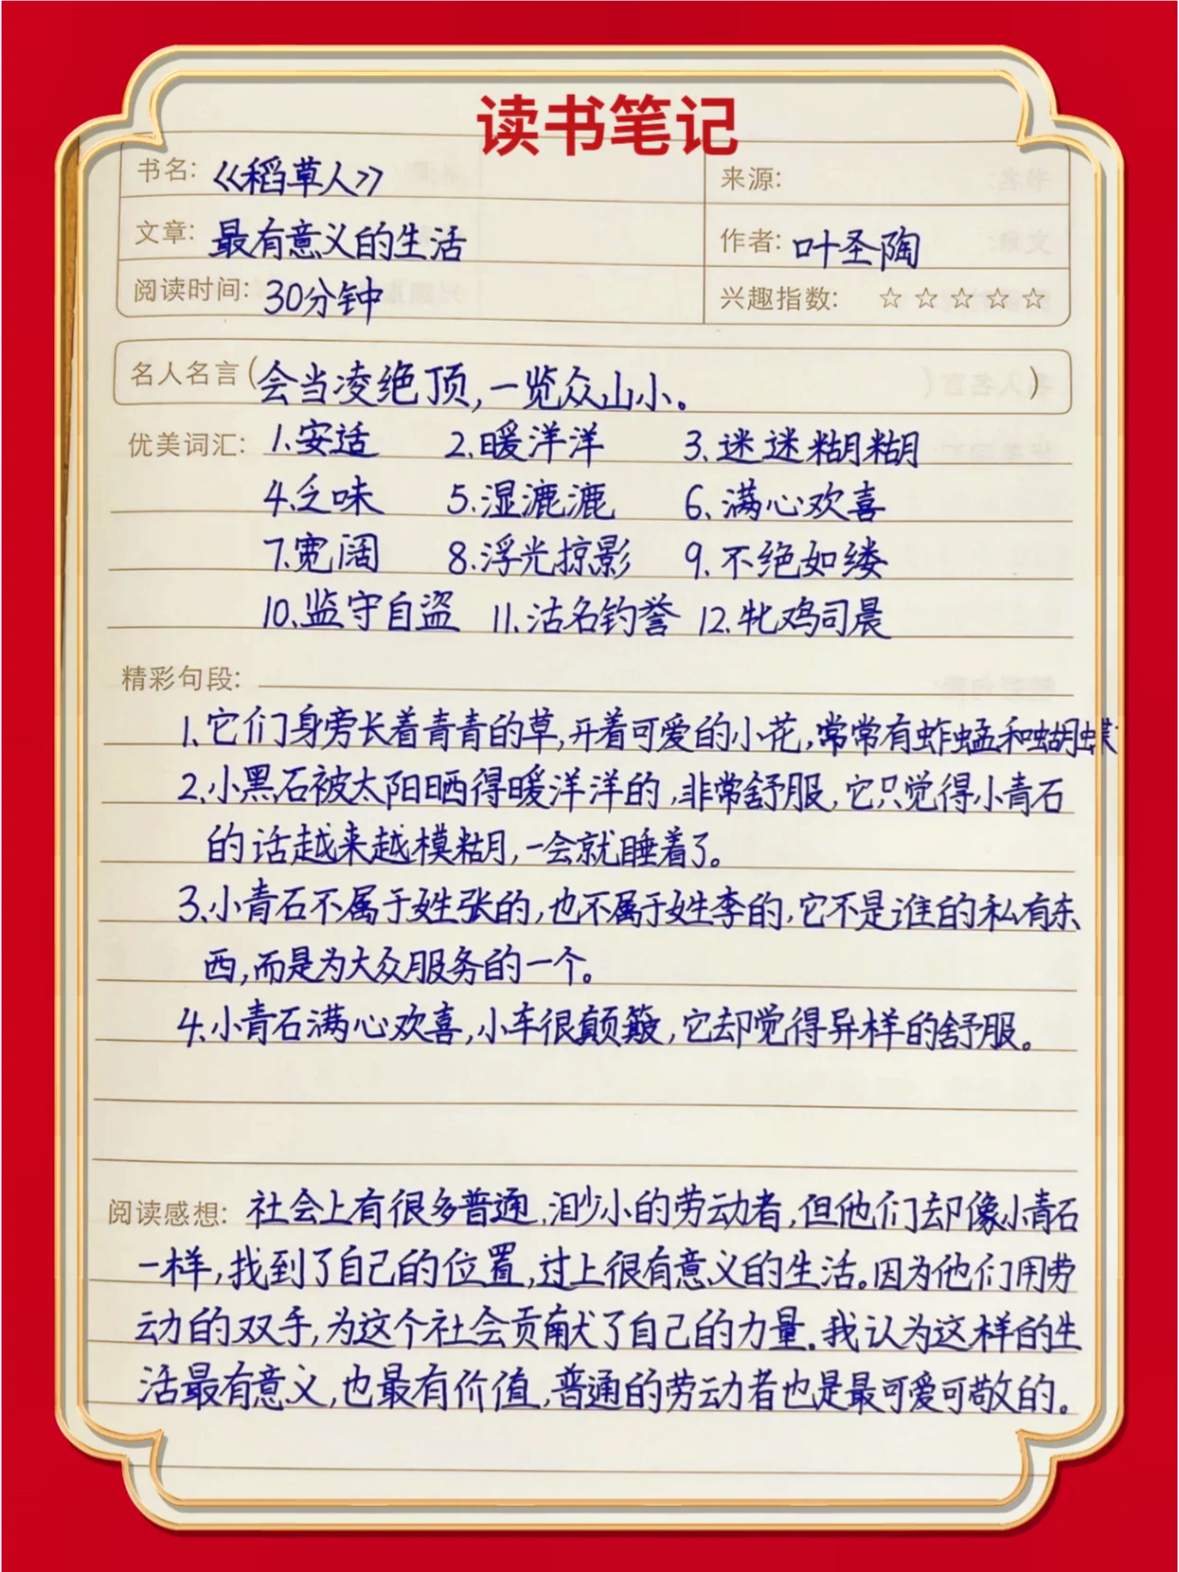 读书笔记
书名: 《稻草人》 来源:
文章: 最有意义的生活 作者: 叶圣陶
阅读时间: 30分钟 兴趣指数: ☆☆☆☆☆
名人名言(会当凌绝顶,一览众山小。)
优美词汇: 1.安适 2.暖洋洋 3.迷迷糊糊
4.乏味 5.湿漉漉 6.满心欢喜
7.宽阔 8.浮光掠影 9.不绝如缕
10.监守自盗 11.沽名钓誉 12.牝鸡司晨
精彩句段:
1.它们身旁长着青青的草,开着可爱的小花,常常有蚱蜢和蝴蝶
2.小黑石被太阳晒得暖洋洋的,非常舒服,它只觉得小青石
的话越来越模糊,一会就睡着了。
3.小青石不属于姓张的,也不属于姓李的,它不是谁的私有东
西,而是为大众服务的一个。
4.小青石满心欢喜,小车很颠簸,它却觉得异样的舒服。
阅读感想: 社会上有很多普通,渺小的劳动者,但他们却像小青石
一样,找到了自己的位置,过上很有意义的生活。因为他们用劳
动的双手,为这个社会贡献了自己的力量。我认为这样的生
活最有意义,也最有价值,普通的劳动者也是最可爱可敬的。